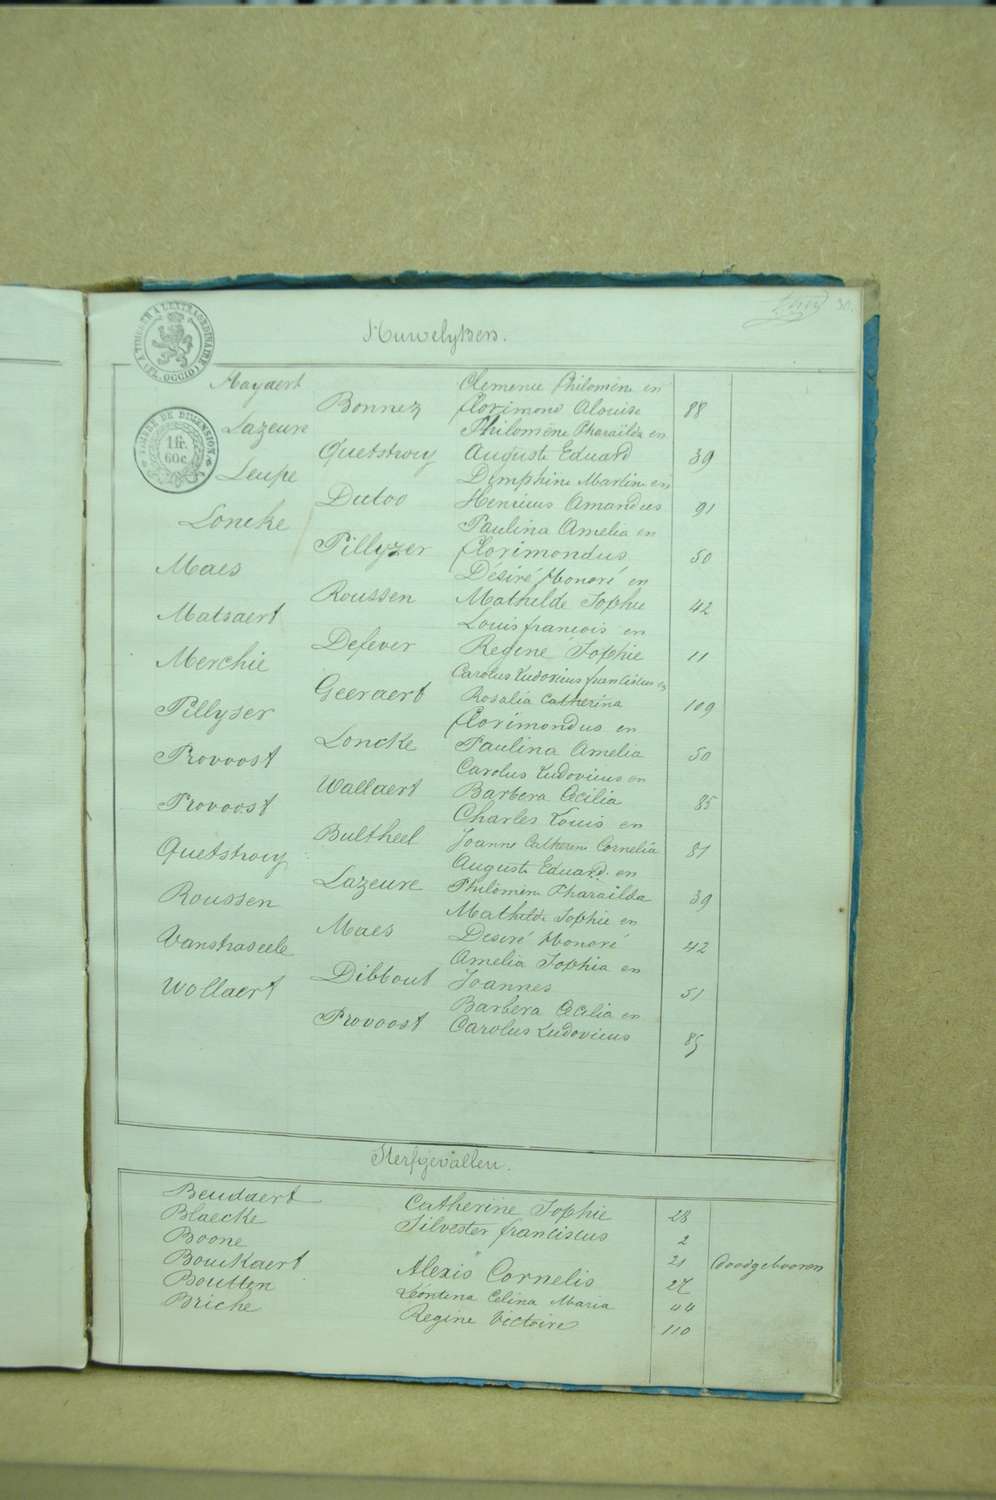 30.
TIMBRE A L'EXTRAORDINAIRE
Huwelyken.
TIMBRE DE DIMENSION
1 fr.
60 c.
Haydert Clemence Philomène en
Bonnez Florimond Alouise 88
Lazeure Philomène Pharailda en
Quetstroey Auguste Eduard 39
Leupe Dimphine Martin en
Dutoo Henricus Amandus 91
Loncke Paulina Amelia en
Pillyzer Florimondus 50
Maes Désiré Honoré en
Roussen Mathilde Sophie 42
Matsaert Louis francois en
Defever Regine Sophie 11
Merchie Carolus Ludovicus franciscus en
Geeraert Rosalia Catherina 109
Pillyser florimondus en
Loncke Paulina Amelia 50
Provoost Carolus Ludovicus en
Wallaert Barbera Cecilia 85
Provoost Charles Louis en
Bultheel Joanne Catherine Cornelia 81
Quetstroey Auguste Eduard en
Lazeure Philomène Pharailda 39
Roussen Mathilde Sophie en
Maes Desiré Honoré 42
Vanstraseele Amelia Sophia en
Dibbout Joannes 51
Wollaert Barbera Cecilia en
Provoost Carolus Ludovicus 85
Sterfgevallen.
Beudaert Catherine Sophie 28
Blaecke Silvester franciscus 2
Boone " 21 doodgebooren
Bouckaert Alexis Cornelis 27
Boutten Leontena Celina Maria 44
Briche Regine Victoire 110